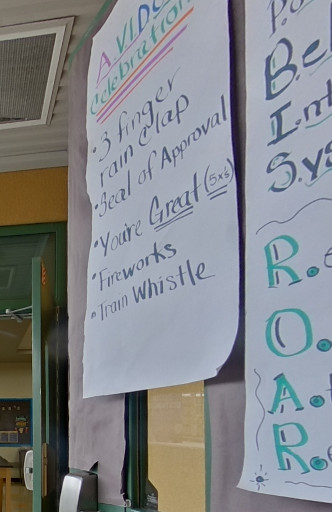 A.VI.D.
Celebration
• 3 finger
rain clap
• Seal of Approval
• You're Great (5x's)
• Fireworks
• Train Whistle
Be
In
Sys
R.
O.
A.
R.